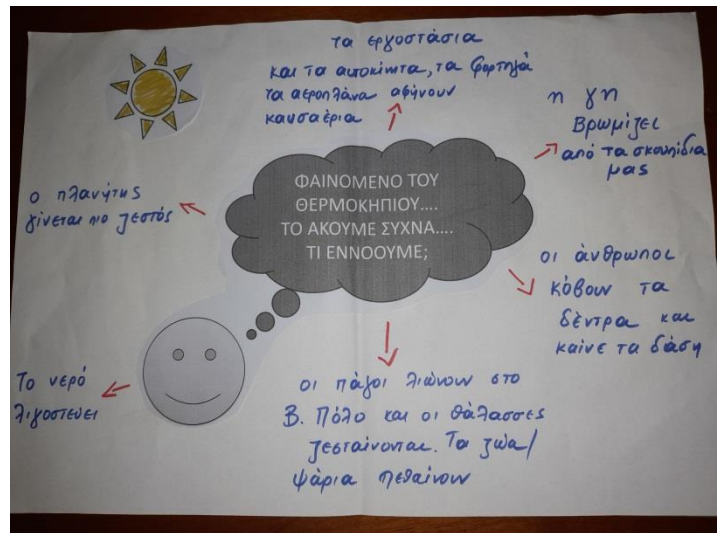 τα εργοστάσια
και τα αυτοκίνητα, τα φορτηγά
τα αεροπλάνα αφήνουν
καυσαέρια
η γη
βρωμίζει
από τα σκουπίδια
μας
ΦΑΙΝΟΜΕΝΟ ΤΟΥ
ΘΕΡΜΟΚΗΠΙΟΥ....
ΤΟ ΑΚΟΥΜΕ ΣΥΧΝΑ....
ΤΙ ΕΝΝΟΟΥΜΕ;
ο πλανήτης
γίνεται πιο ζεστός
οι άνθρωποι
κόβουν τα
δέντρα και
καίνε τα δάση
Το νερό
λιγοστεύει
οι πάγοι λιώνουν στο
Β. Πόλο και οι θάλασσες
ζεσταίνονται. Τα ζώα/
ψάρια πεθαίνουν